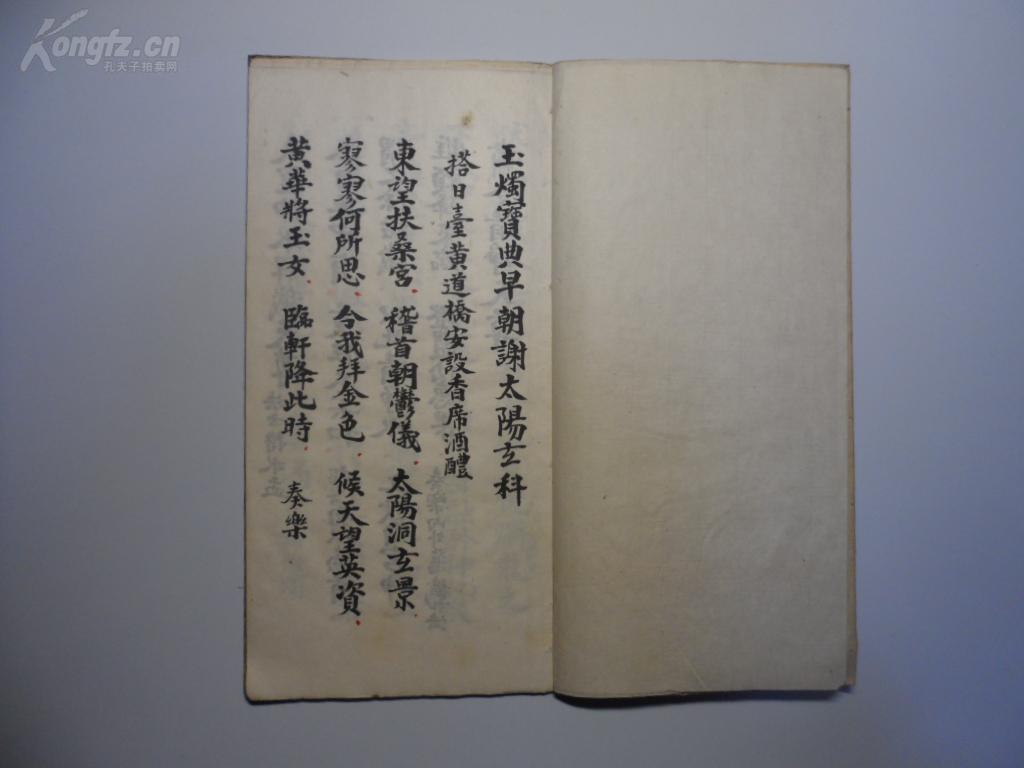 玉燭寶典早朝謝太陽玄科
搭日臺黄道橋安設香席酒醴
東望扶桑宮、稽首朝鬱儀、太陽洞玄景、
寥寥何所思、今我拜金色、候天望英資、
黄華將玉女、臨軒降此時、奏樂
Kongfz.cn
孔夫子拍卖网